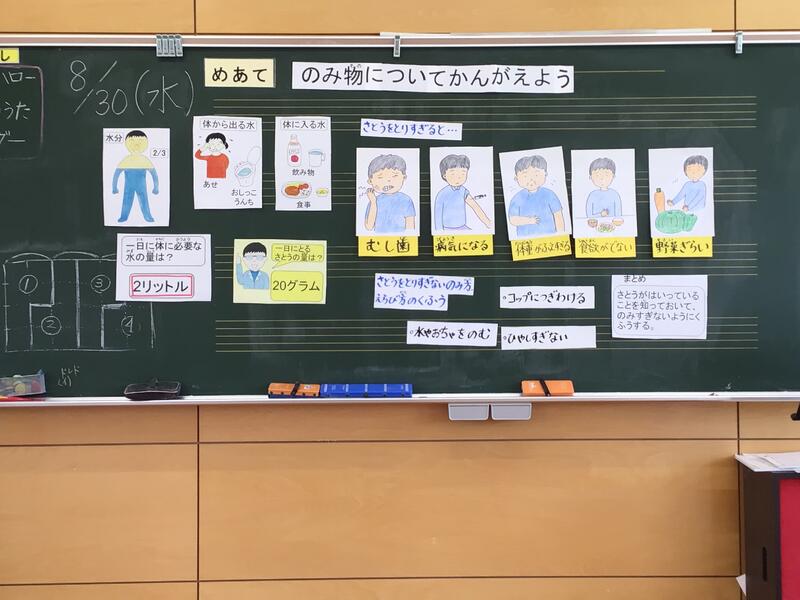 し
ハロー
うた
8/30(水)
めあて
のみ物についてかんがえよう
水分
2/3
体から出る水
あせ
おしっこ
うんち
体に入る水
飲み物
食事
さとうをとりすぎると…
むし歯
病気になる
体重がふえすぎる
食欲がでない
野菜ぎらい
一日に体に必要な
水の量は?
2リットル
一日にとる
さとうの量は?
20グラム
さとうをとりすぎないのみ方、
えらび方のくふう
・コップにつぎわける
・水やおちゃをのむ
・ひやしすぎない
まとめ
さとうがはいっている
ことを知っておいて、
のみすぎないようにく
ふうする。
①
②
③
④